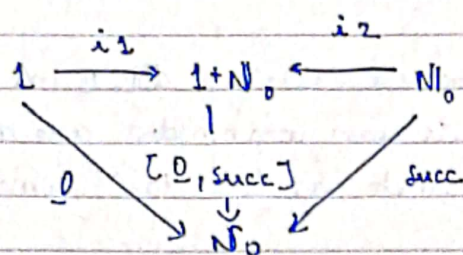 i1 i2
1 1+ℕ₀ ℕ₀
[0, succ]
0 succ
ℕ₀